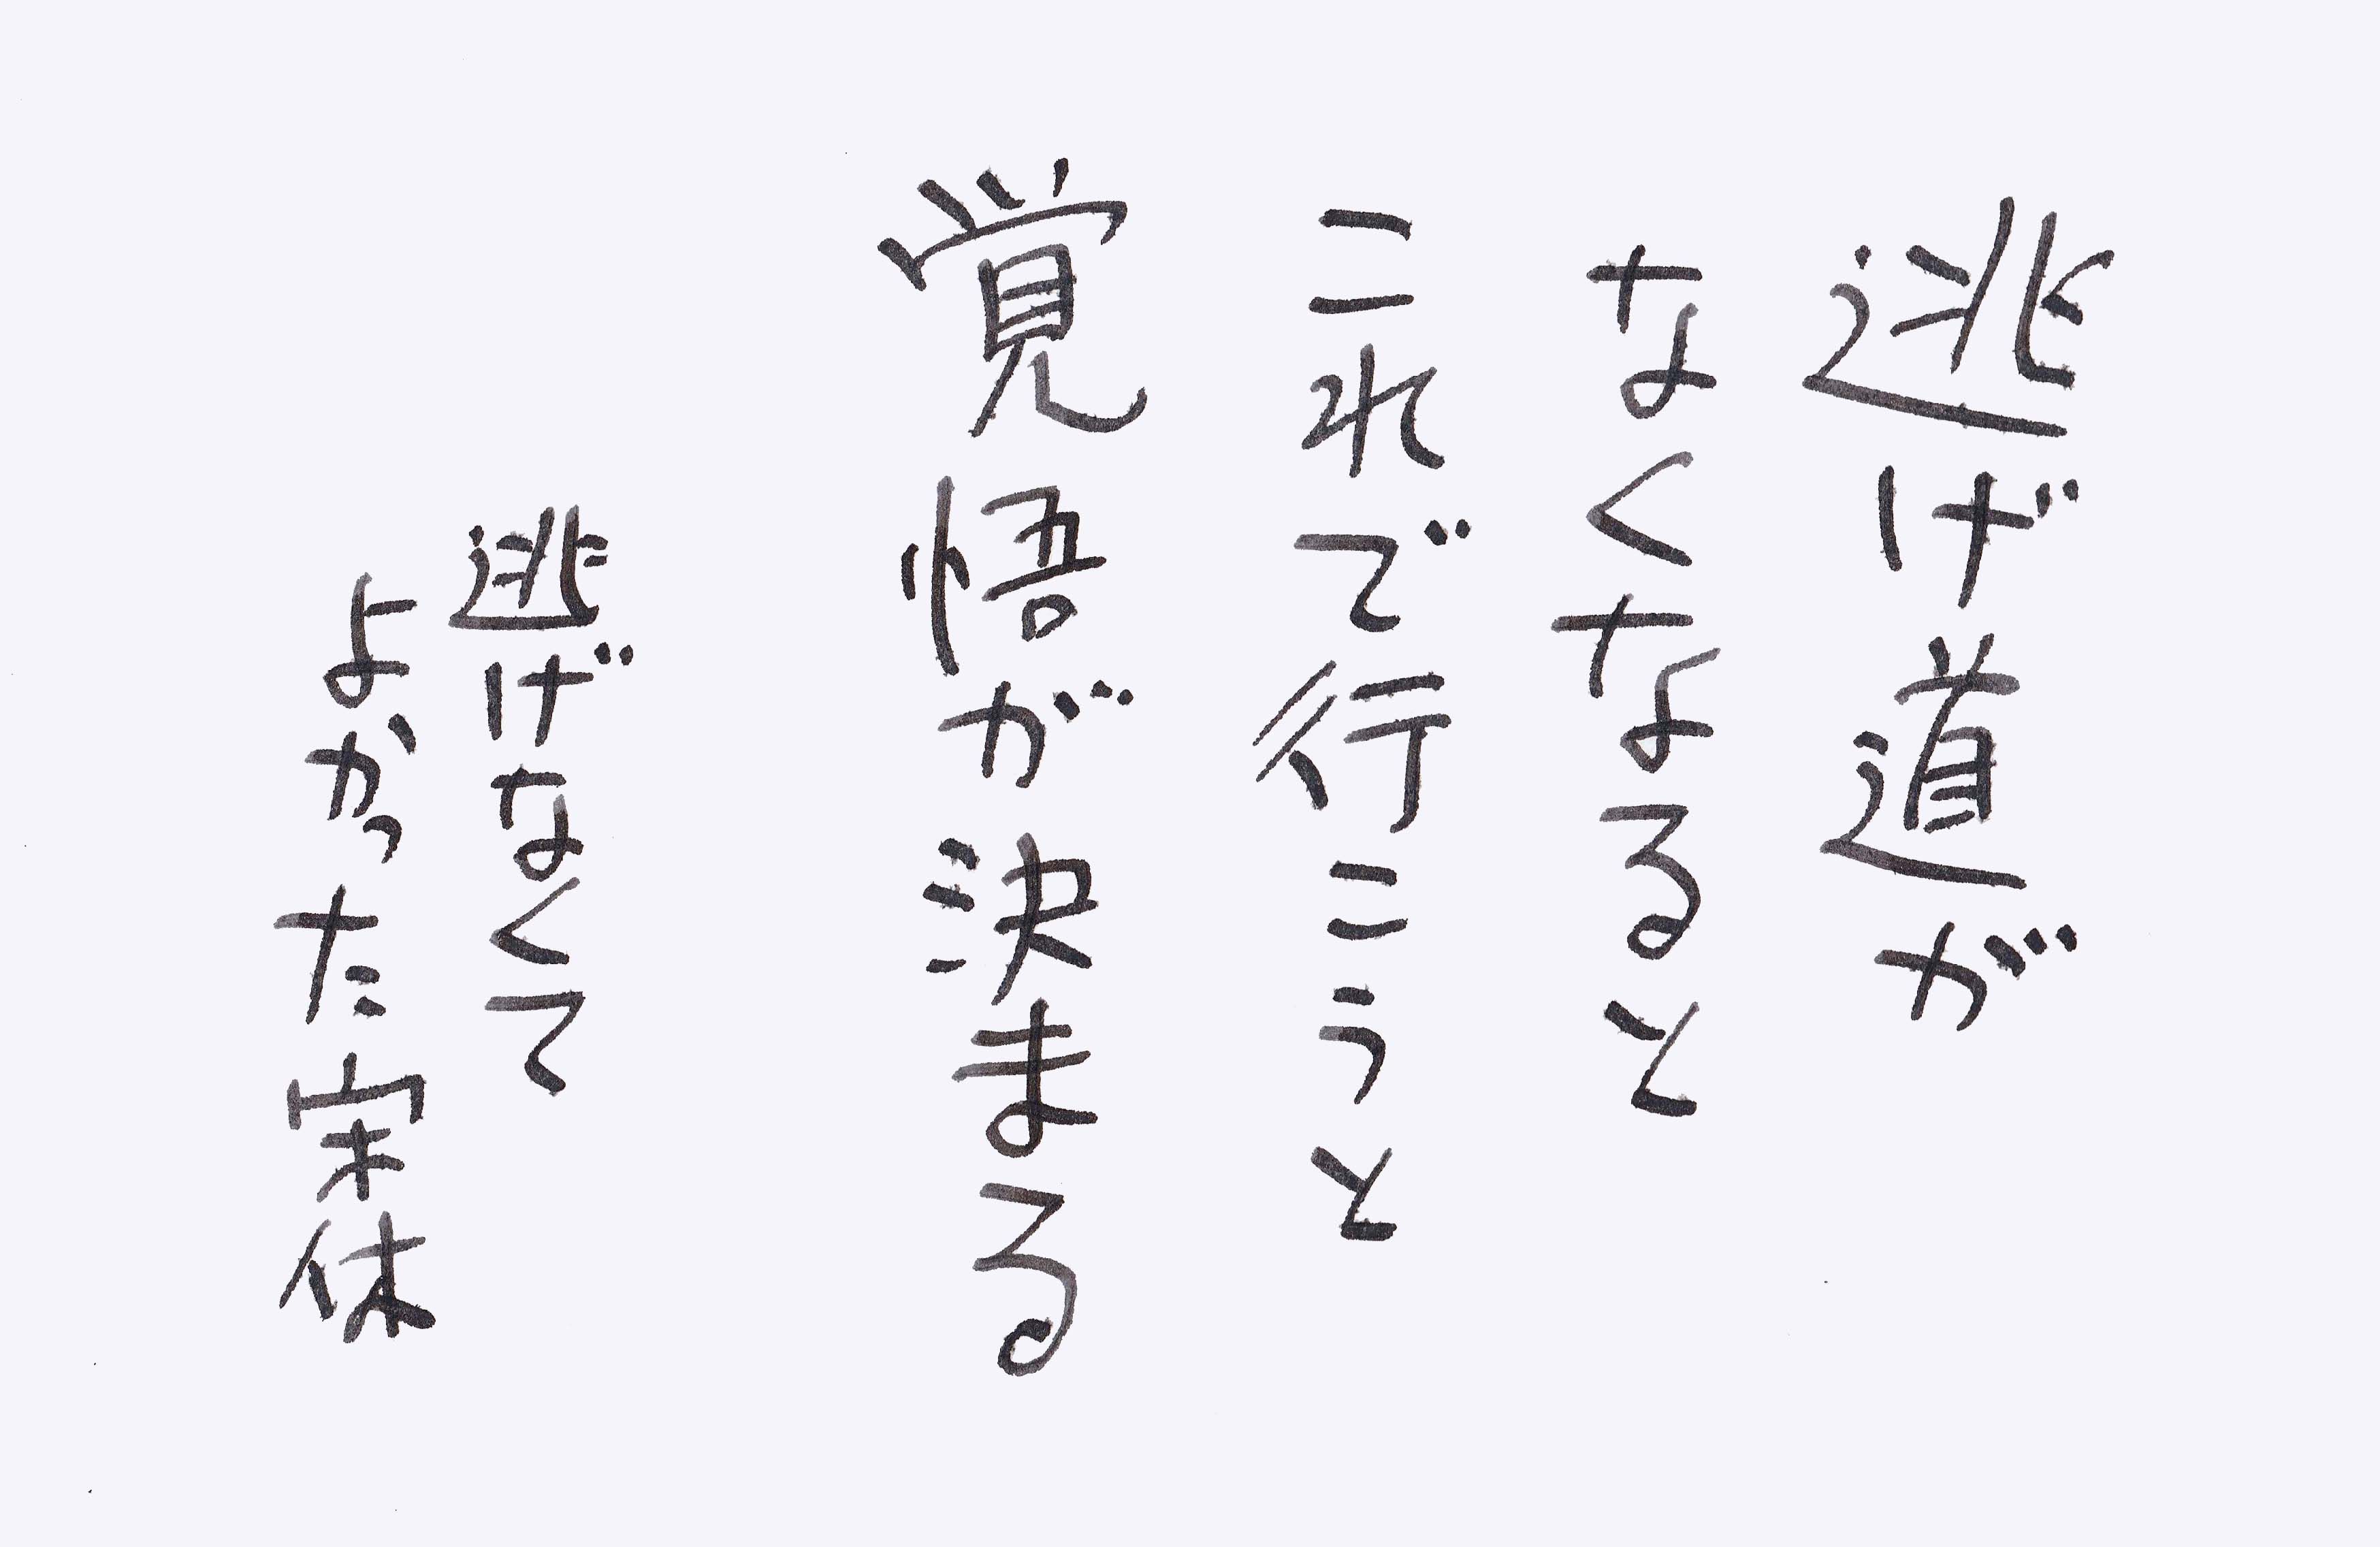 逃げ道が
なくなると
これで行こうと
覚悟が決まる
逃げなくて
よかった宗休